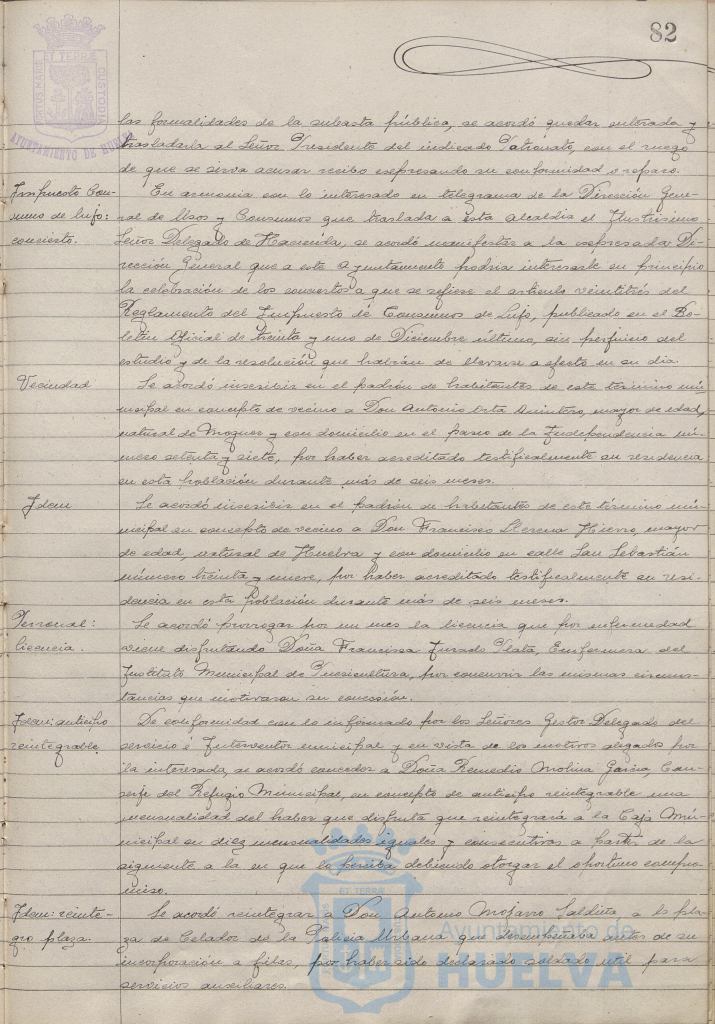 82
PORTUS MARIS ET TERRÆ CUSTODIA
AYUNTAMIENTO DE HUELVA
las formalidades de la subasta pública, se acordó quedar enterada y
trasladarla al Señor Presidente del indicado Patronato, con el ruego
de que se sirva acusar recibo expresando su conformidad o reparo.
Impuesto Con-
sumo de lujo:
concierto.
En armonia con lo interesado en telegrama de la Dirección Gene-
ral de Usos y Consumos que traslada a esta Alcaldia el Ilustrísimo
Señor Delegado de Hacienda, se acordó manifestar a la expresada Di-
rección General que a este Ayuntamiento podria interesarle en principio
la celebración de los conciertos a que se refiere el articulo veintitrés del
Reglamento del Impuesto de Consumos de Lujo, publicado en el Bo-
letin Oficial de treinta y uno de Diciembre último, sin perjuicio del
estudio y de la resolución que habrán de llevarse a efecto en su dia.
Vecindad
Se acordó inscribir en el padrón de habitantes de este término mu-
nicipal en concepto de vecino a Don Antonio Quintero, mayor de edad,
natural de Moguer y con domicilio en el paseo de la Independencia nú-
mero setenta y siete, por haber acreditado testificalmente su residencia
en esta población durante más de seis meses.
Idem
Se acordó inscribir en el padrón de habitantes de este término mu-
nicipal en concepto de vecino a Don Francisco Llerena Hierro, mayor
de edad, natural de Huelva y con domicilio en calle San Sebastián
número treinta y nueve, por haber acreditado testificalmente su resi-
dencia en esta población durante más de seis meses.
Personal:
licencia.
Se acordó prorrogar por un mes la licencia que por enfermedad
viene disfrutando Doña Francisca Jurado Plata, Enfermera del
Instituto Municipal de Puericultura, por concurrir las mismas circuns-
tancias que motivaron su concesión.
Idem: anticipo
reintegrable
De conformidad con lo informado por los Señores Gestor Delegado del
servicio e Interventor municipal y en vista de los motivos alegados por
la interesada, se acordó conceder a Doña Remedio Molina Garcia, Con-
serje del Refugio Municipal, en concepto de anticipo reintegrable una
mensualidad del haber que disfruta que reintegrará a la Caja Mu-
nicipal en diez mensualidades iguales y consecutivas a partir de la
siguiente a la en que lo perciba debiendo otorgar el oportuno compro-
miso.
Idem: reinte-
gro plaza.
Se acordó reintegrar a Don Antonio Mojarro Saldiña a la pla-
za de Celador de la Policia Urbana que desempeñaba antes de su
incorporación a filas, por haber sido declarado soldado util para
servicios auxiliares.
ET TERRÆ
Ayuntamiento de
HUELVA